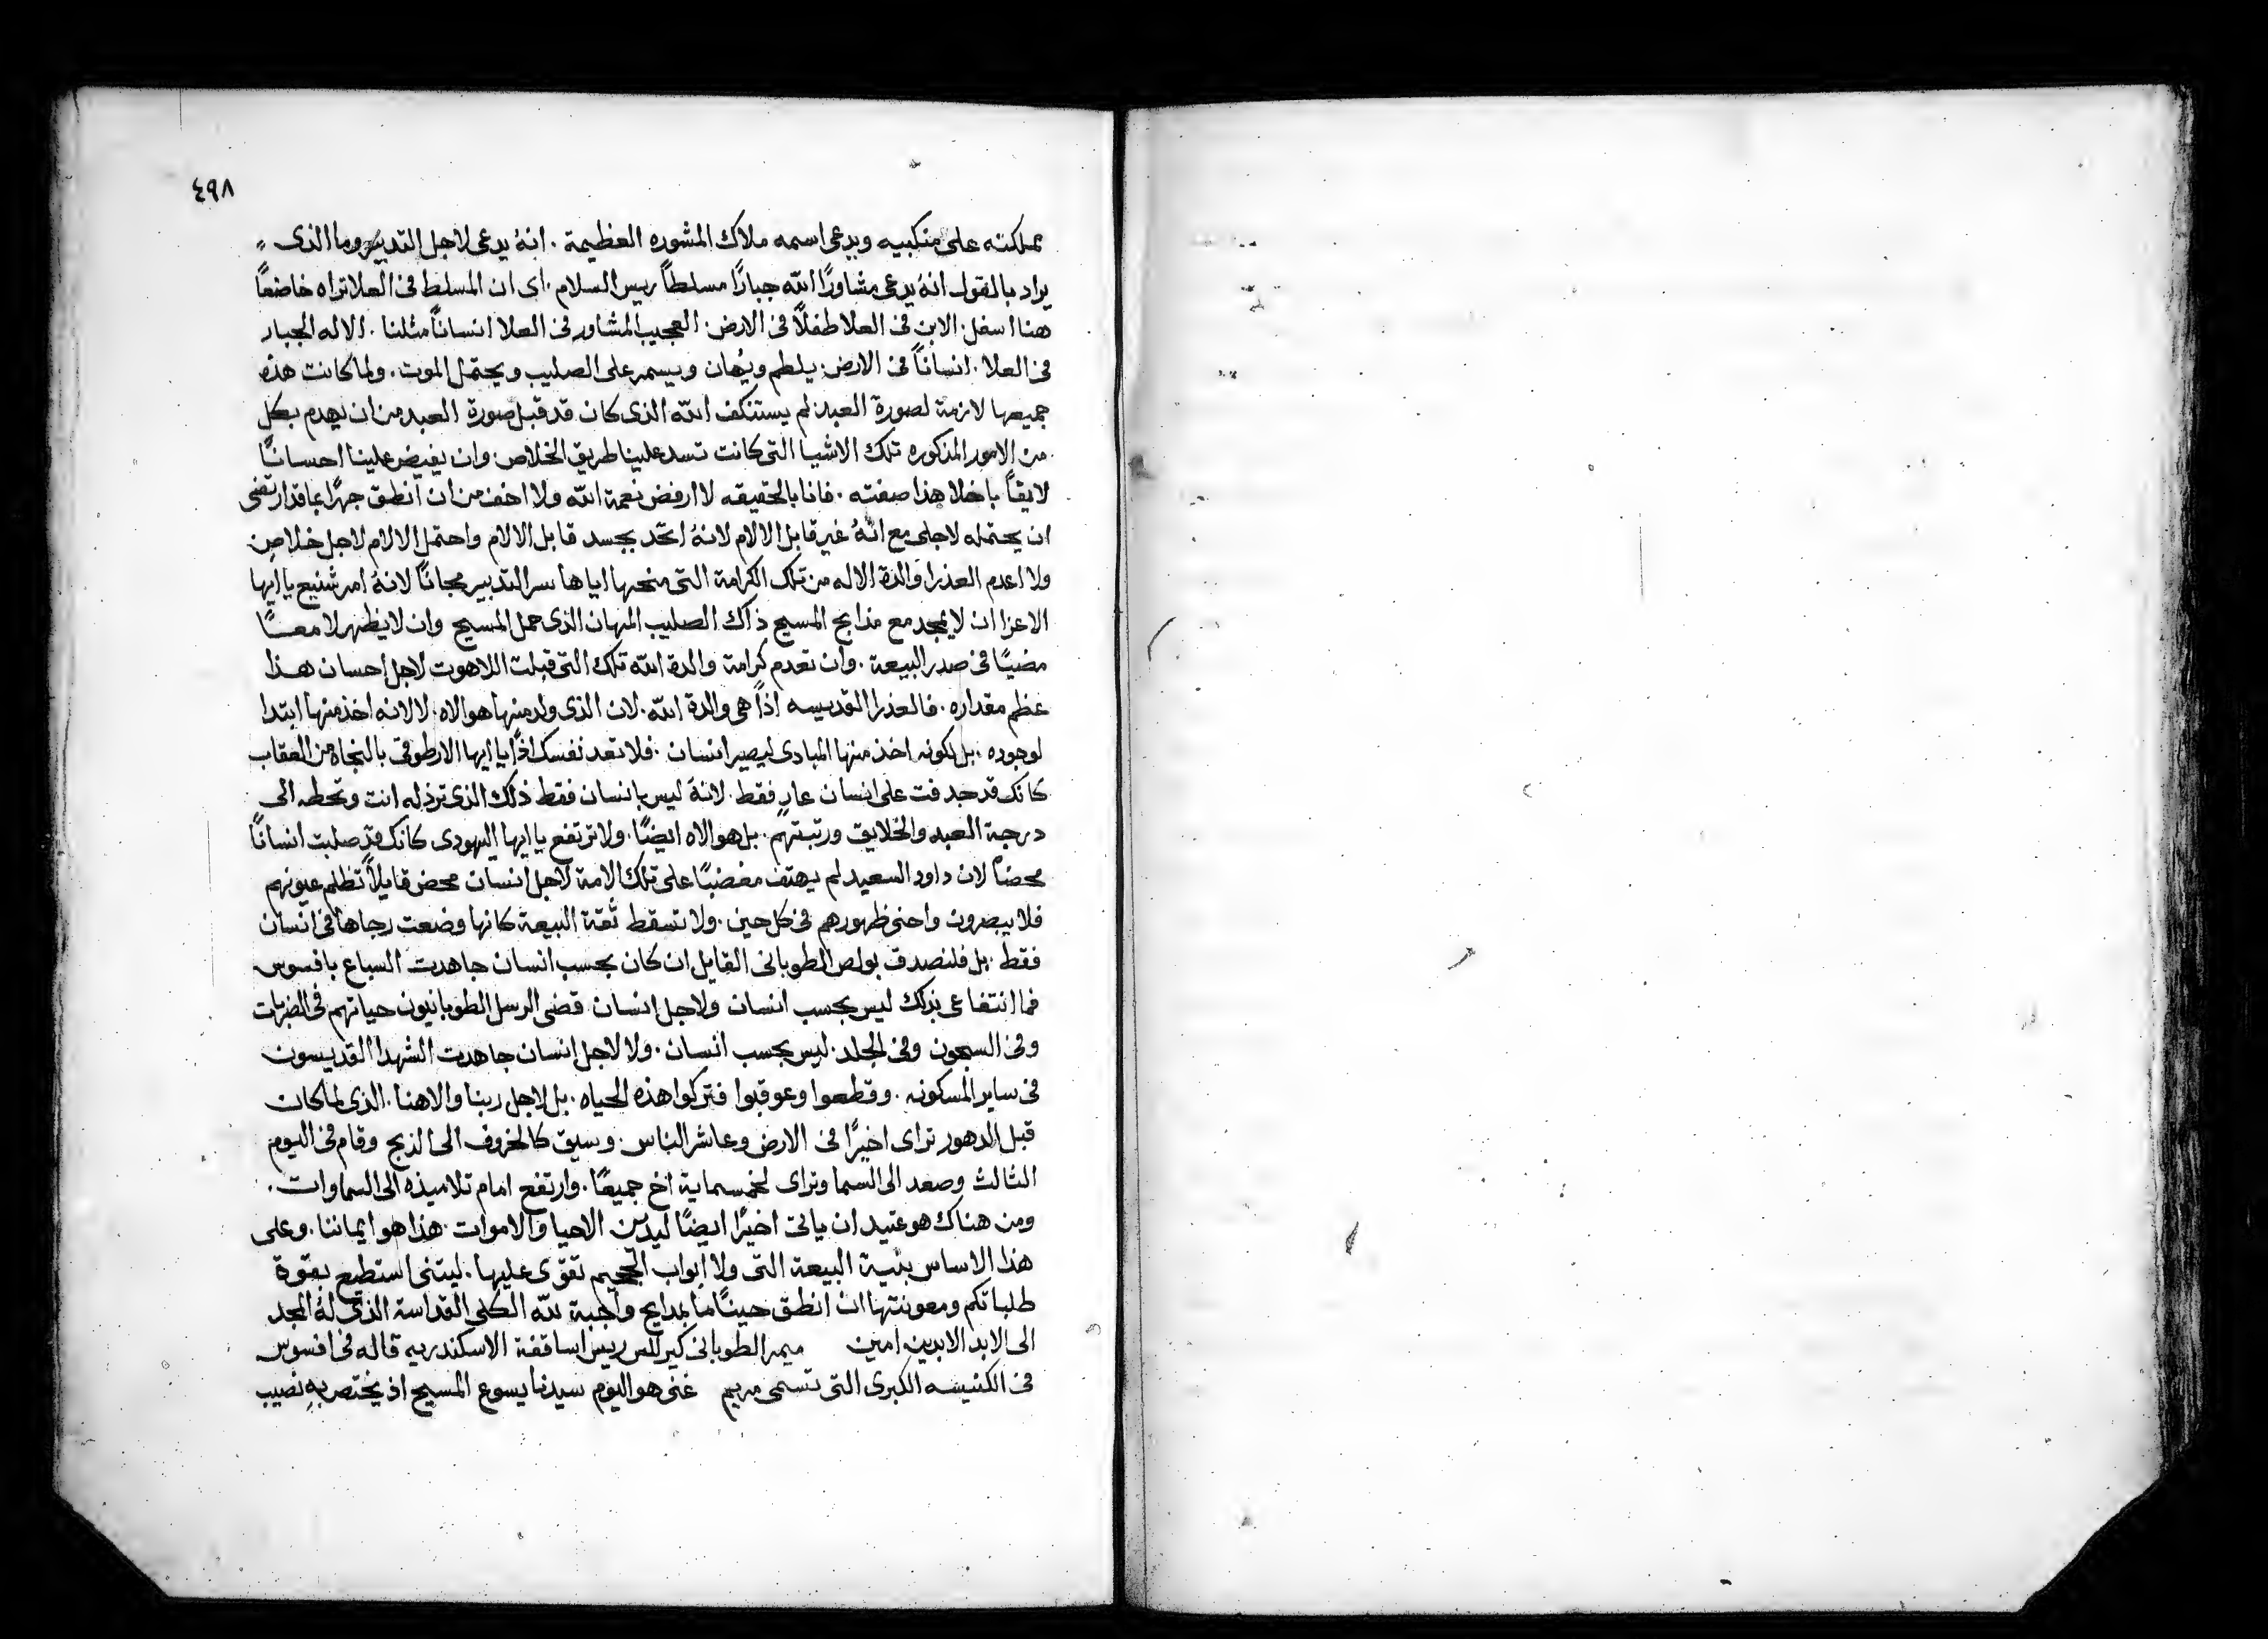 ٤٩٨
مملكته على منكبيه ويدعى اسمه ملاك المشوره العظيمة . انهُ يدعى لاجل التدبير وما الذى
يراد بالقول انهُ يدعى مشاورًا الله جبارًا مسلطًا ريس السلام . اى ان المسلط فى العلا تراه خاضعًا
هنا اسفل . الابن فى العلا طفلًا فى الارض . العجيب المشاور فى العلا انسانًا مثلنا . الاله الجبار
فى العلا . انسانًا فى الارض . يلطم ويُهان ويسمر على الصليب ويحتمل الموت . ولما كانت هذه
جميعها لازمة لصورة العبد لم يستنكف الله الذى كان قد قبل صورة العبد من ان يهدم بكل
من الامور المذكوره تلك الاشيا التى كانت تسد علينا طريق الخلاص . وان يفيض علينا احسانًا
لايقًا باخلا هذا صفته . فانا بالحقيقه لا ارفض نعمة الله ولا اخف من ان انطق جهرًا بما قد ارتضى
ان يحتمله لاجلى مع انهُ غير قابل الالام لانهُ اتحد بجسد قابل الالام واحتمل الالام لاجل خلاصى
ولا اعدم العذرا والدة الاله من تلك الكرامة التى منحها اياها سر التدبير مجانًا لانهُ امر شنيع يا ايها
الاعزا ان لا يمجد مع مذابح المسيح ذاك الصليب المهان الذى حمل المسيح وان لا يظهر لامعًا
مضيًا فى صدر البيعة . وان تعدم كرامة والدة الله تلك التى قبلت اللاهوت لاجل احسان هذا
عظم مقداره . فالعذرا القديسه اذًا هى والدة الله . لان الذى ولد منها هو الاه . لا لانه اخذ منها ابتدا
لوجوده . بل لكونه اخذ منها المبادى ليصير انسان . فلا تعد نفسك اذًا يا ايها الارطوقى بالنجاه من العقاب
كانك قد جدفت على انسان عارٍ فقط . لانهُ ليس بانسان فقط ذلك الذى ترذله انت وتحطه الى
درجة العبد والخلايق ورتبتهم . بل هو الاه ايضًا . ولا ترتفع يا ايها اليهودى كانك قد صلبت انسانًا
محضًا لان داود السعيد لم يهتف مغضبًا على تلك الامة لاجل انسان محض قايلًا تظلم عيونهم
فلا يبصرون واحنى ظهورهم فى كل حين . ولا تسقط ثقة البيعة كانها وضعت رجاها فى انسان
فقط . بل فلنصدق بولص الطوبانى القايل ان كان بحسب انسان جاهدت السباع بافسوس
فما انتفاعى بذلك ليس بحسب انسان ولاجل انسان قضى الرسل الطوبانيون حياتهم فى الضربات
وفى السجون وفى الجلد . ليس بحسب انسان . ولا لاجل انسان جاهدت الشهدا القديسون
فى ساير المسكونه . وقطعوا وعوقبوا فتركوا هذه الحياه . بل لاجل ربنا والاهنا . الذى لما كان
قبل الدهور تراى اخيرًا فى الارض وعاشر الناس . وسيق كالخروف الى الذبح وقام فى اليوم
الثالث وصعد الى السما وتراى لخمسماية اخ جميعًا . وارتفع امام تلاميذه الى السماوات .
ومن هناك هو عتيد ان ياتى اخيرًا ايضًا ليدين الاحيا والاموات . هذا هو ايماننا . وعلى
هذا الاساس بنية البيعة التى ولا ابواب الجحيم تقوى عليها . ليتنى استطيع بقوة
طلباتكم ومعونتها ان انطق حينًا ما بمدايح واجبة لله الكلى القداسة الذى لهُ المجد
الى الابد الابدين امين ميمر الطوبانى كيرللس ريس اساقفة الاسكندريه قاله فى افسوس
فى الكنيسه الكبرى التى تسمى مريم غنى هو اليوم سيدنا يسوع المسيح اذ يختص بهِ نصيب